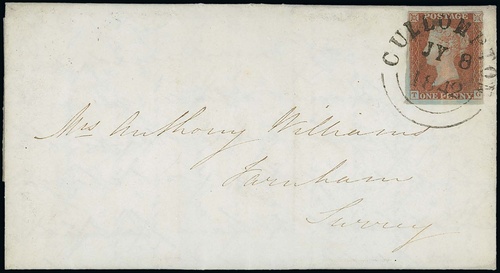 POSTAGE
ONE PENNY
CULLOMPTON
JY 8
1842
Mrs Anthony Williams
Farnham
Surrey